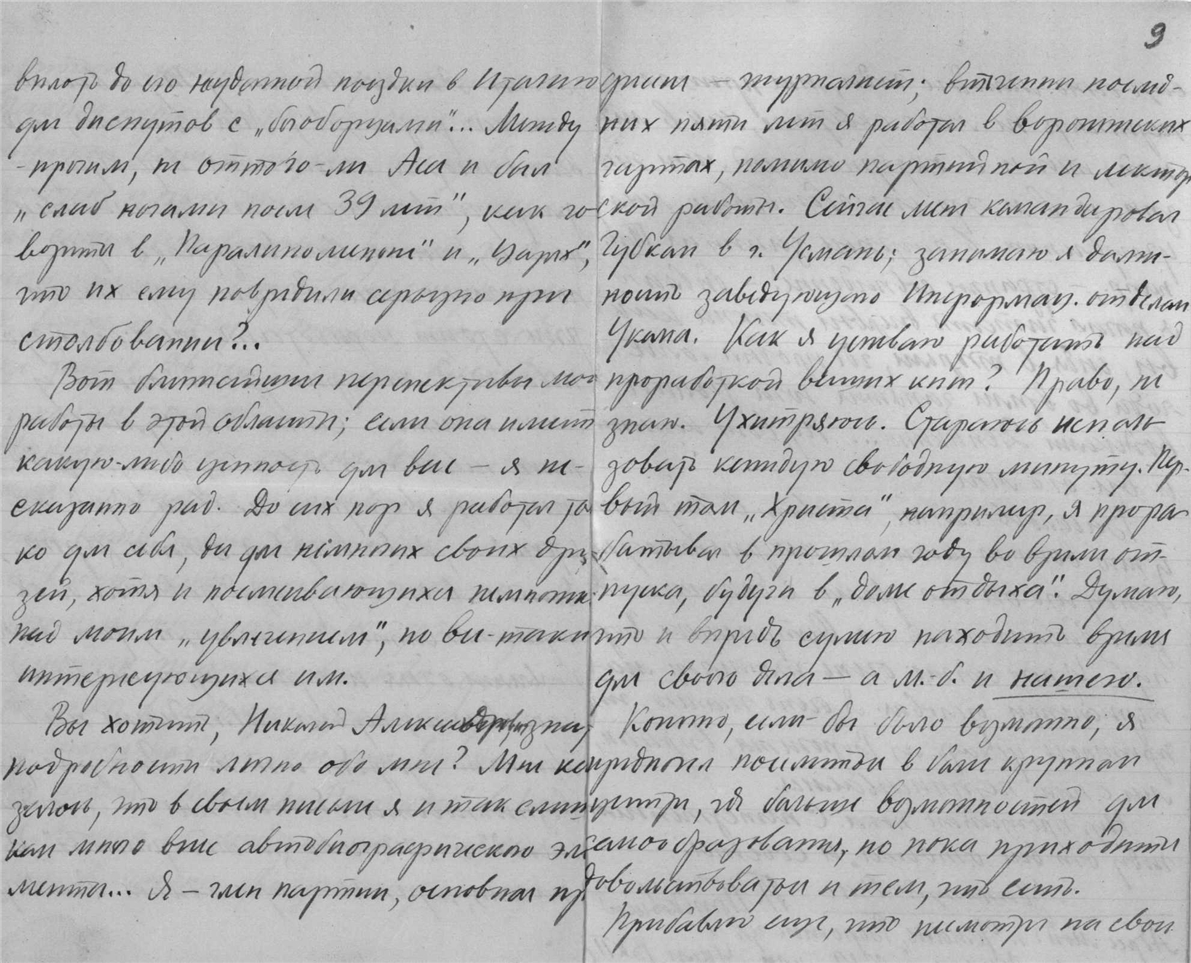 вплоть до его неудачной поездки в Италию
для диспутов с „богоборцами“... Между
-прочим, не оттого-ли Аса и был
„слаб ногами после 39 лет“, как го-
ворится в „Паралипоменон“ и „Царях“,
что их ему повредили серьезно при
столбовании?..
Вот ближайшие перспективы моей
работы в этой области; если она имеет
какую-либо ценность для вас – я не-
сказанно рад. До сих пор я работал толь-
ко для себя, да для немногих своих дру-
зей, хотя и посмеивающихся немного
над моим „увлечением“, но все-таки
интересующихся им.
Вы хотите, Николай Александрович, знать
подробности лично обо мне? Мне ка-
залось, что в своем письме я и так слиш-
ком много внес автобиографического эле-
мента... Я – член партии, основная про-
9
фессия – журналист; втечении послед-
них пяти лет я работал в воронежских
газетах, помимо партийной и лектор-
ской работы. Сейчас меня командировал
Губком в г. Усмань; занимаю я долж-
ность заведующего Информац. отделом
Укома. Как я успеваю работать над
проработкой ваших книг? Право, не
знаю. Ухитряюсь. Стараюсь исполь-
зовать каждую свободную минуту. Пер-
вый том „Христа“, например, я прора-
батывал в прошлом году во время от-
пуска, будучи в „доме отдыха“. Думаю,
что и впредь сумею находить время
для своего дела – а м.-б. и нашего.
Конечно, если-бы было возможно, я
предпочел поселиться в более крупном
центре, где больше возможностей для
самообразования, но пока приходится
довольствоваться и тем, что есть.
Прибавлю еще, что несмотря на свои